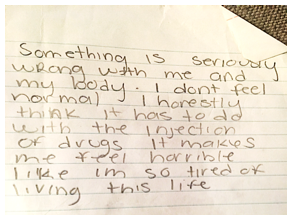 Something is seriously
wrong with me and
my body. I dont feel
normal I honestly
think it has to do
with the injection
of drugs it makes
me feel horrible
like im so tired of
living this life